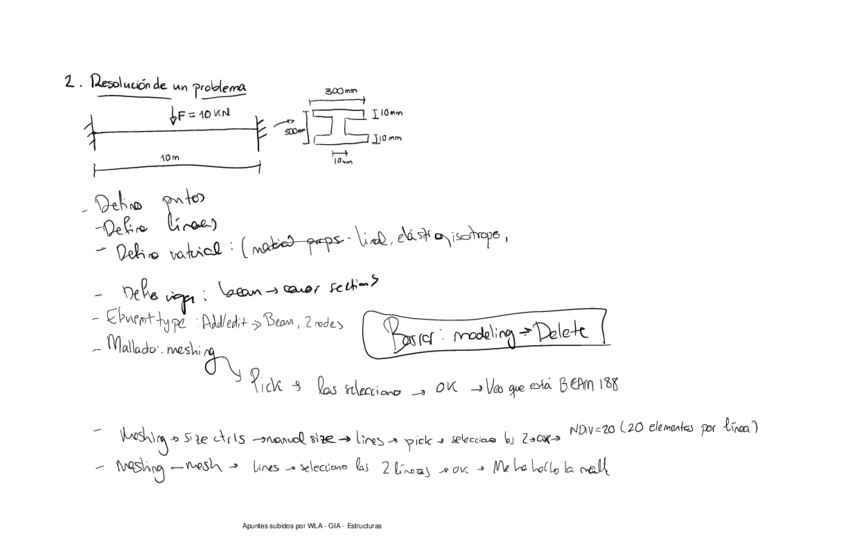 2. Resolución de un problema
300mm
F = 10 KN
10mm
300mm
10mm
10mm
10m
- Defino puntos
- Defino líneas
- Defino material : (material props - lineal, elástico, isotropo,
- Defino viga : beam → common sections
- Element type : Add/edit → Beam, 2 nodes
Borrar : modeling → Delete
- Mallado : meshing
Pick → las selecciono → OK → Veo que está BEAM 188
- Meshing → size ctrls → manual size → lines → pick → selecciono las 2 → OK → NDIV=20 (20 elementos por línea)
- Meshing - mesh → lines → selecciono las 2 líneas → OK → Me ha hecho la malla
Apuntes subidos por WLA - GIA - Estructuras